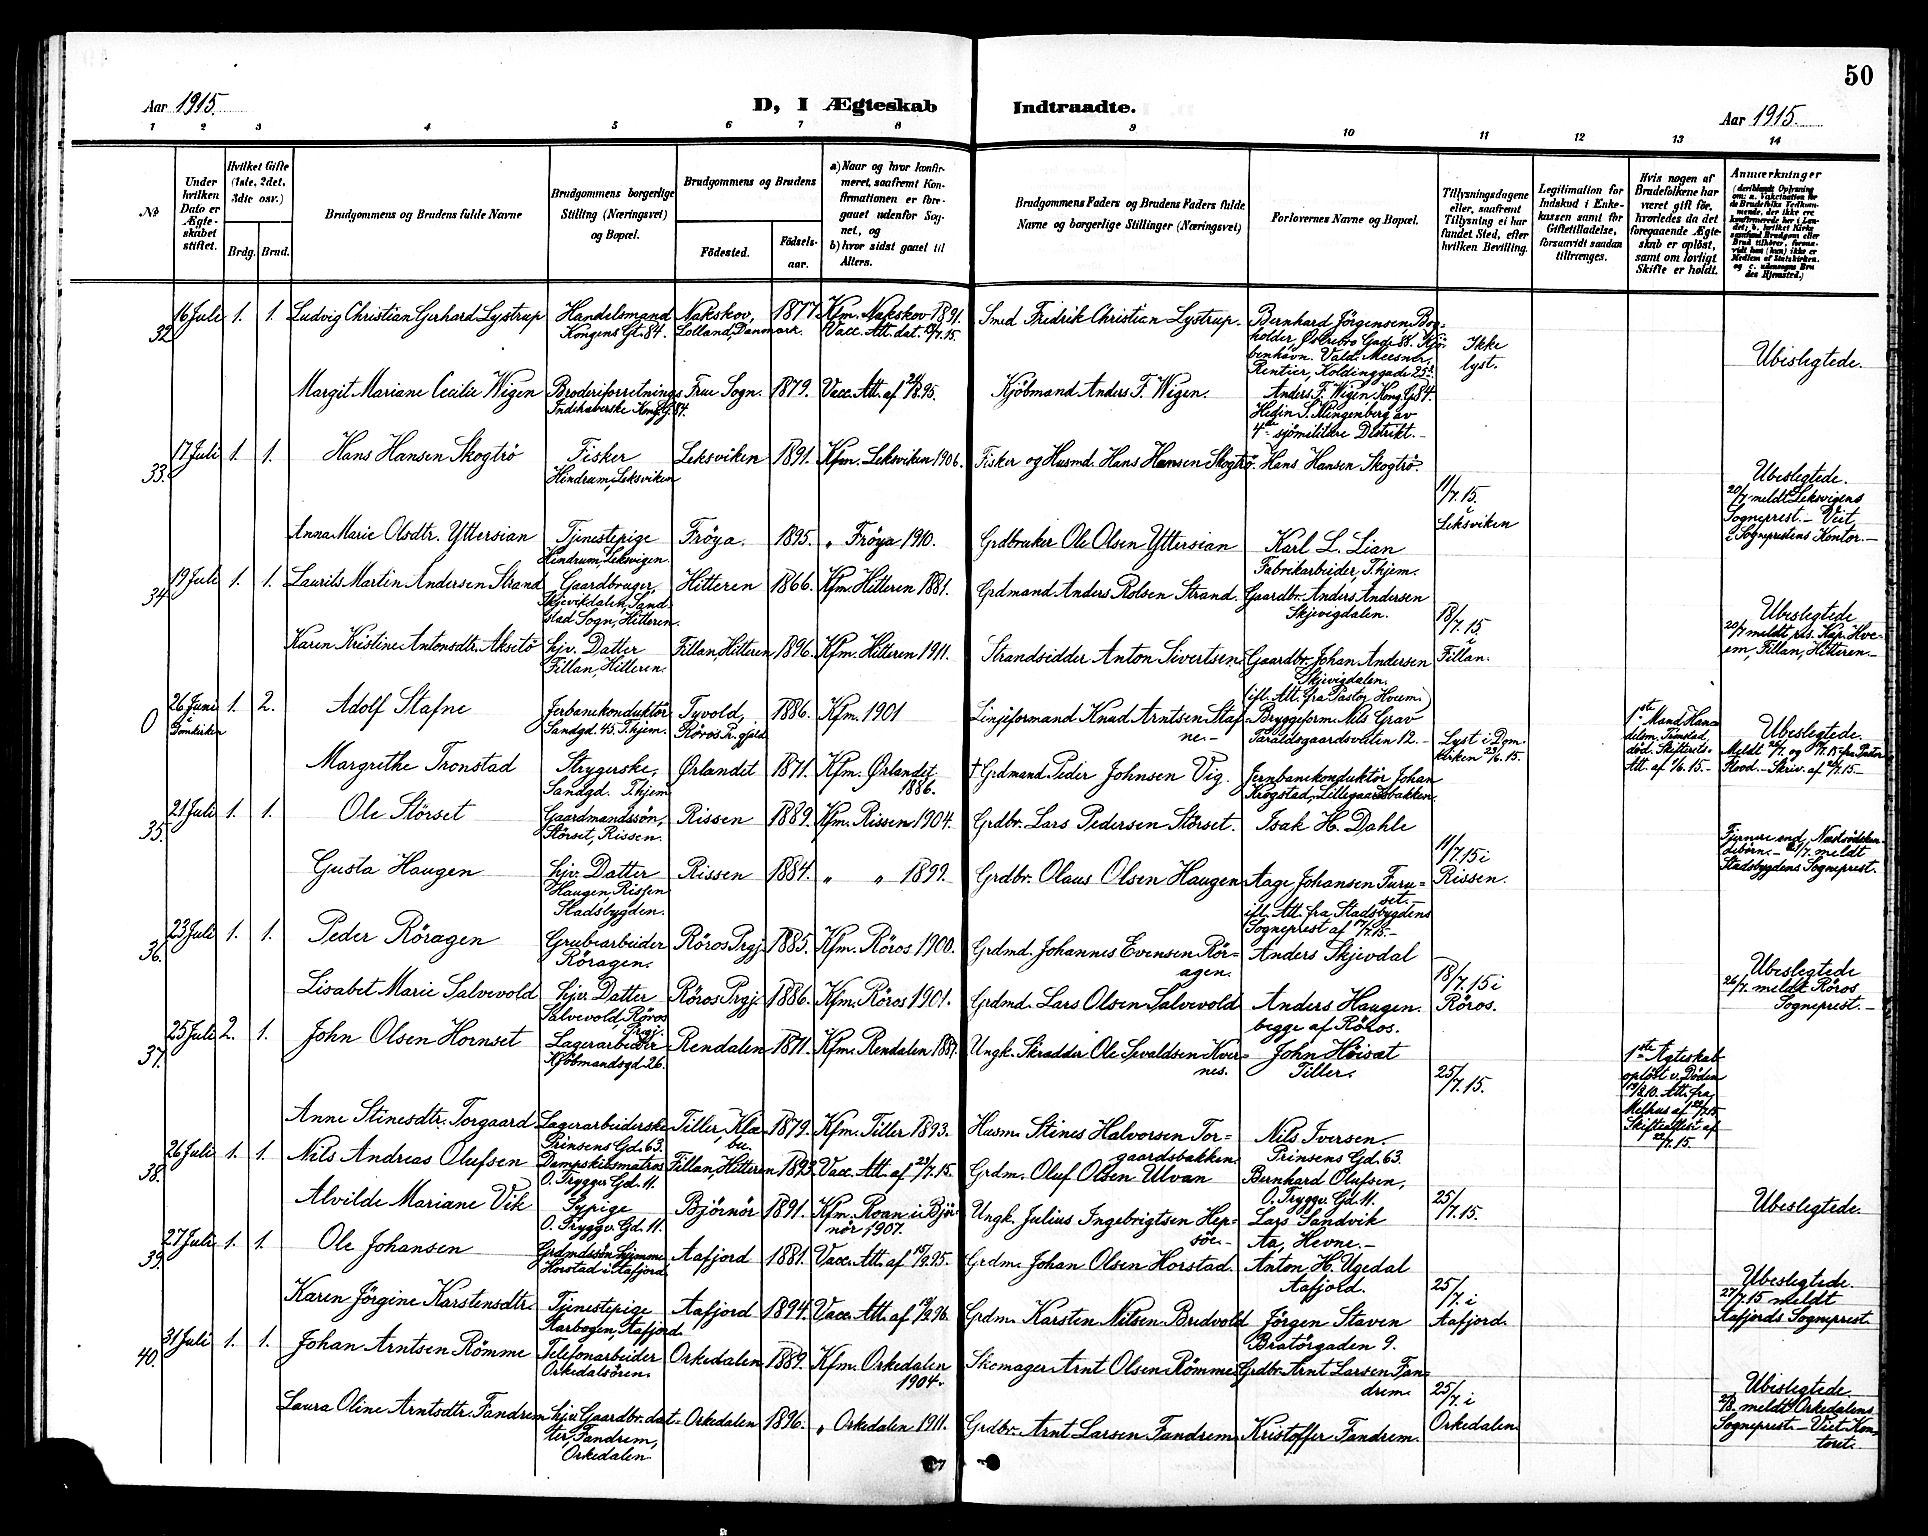 50
Aar 1915.
D, I Ægteskab
Indtraadte.
Aar 1915.
1 2 3 4 5 6 7 8 9 10 11 12 13 14
No
Under hvilken Dato er Ægteskabet stiftet.
Hvilket Gifte (1ste, 2det, 3die osv.)
Brdg. Brud.
Brudgommens og Brudens fulde Navne
Brudgommens borgerlige Stilling (Næringsvei) og Bopæl.
Brudgommens og Brudens
Fødested.
Fødselsaar.
a) Naar og hvor konfirmeret, saafremt Konfirmationen er foregaaet udenfor Sognet, og
b) hvor sidst gaaet til Alters.
Brudgommens Faders og Brudens Faders fulde Navne og borgerlige Stillinger (Næringsvei)
Forlovernes Navne og Bopæl.
Tillysningsdagene eller, saafremt Tillysning ei har fundet Sted, efter hvilken Bevilling.
Legitimation for Indskud i Enkekassen samt for Giftetilladelse, forsaavidt saadan tiltrænges.
Hvis nogen af Brudefolkene har været gift før, hvorledes da det foregaaende Ægteskab er opløst, samt om lovligt Skifte er holdt.
Anmærkninger
32. 16 Juli 1. 1. Ludvig Christian Gerhard Lystrup Handelsmand Kongens Gt. 84. Nakskov, Lolland, Danmark. 1877 Kfm. Nakskov 1891. Vacc. Att. dat. 13/7.15. Smed Fridrik Christian Lystrup. Bernhard Jörgensen, Bogholder, Østrebro Gade 88. Kjöbenhavn. Vald. Meesner, Rentier, Koldinggade 25. Ikke lyst. Ubeslegtede.
Margit Mariane Cecilie Wigen Broderiforretnings Indehaverske Kong. G. 84. Frue Sogn. 1879. Vacc. Att. af 21/8.95. Kjöbmand Anders F. Wigen. Anders F. Wigen, Kong. G. 84. Hedin S. Klingenberg av 4de sjömilitære Distrikt.
33. 17 Juli 1. 1. Hans Hansen Skogtrö Fisker Hindrum, Leksviken Leksviken 1891. Kfm. Leksviken 1906. Fisker og Husmd. Hans Hansen Skogtrö. Hans Hansen Skogtrö. 11/7.15. i Leksviken Ubeslegtede. 20/7 meldt Leksvigens Sogneprest. Viet i Sogneprestens Kontor.
Anna Marie Olsdtr. Yttersian Tjenestepige Hindrum, Leksvigen. Fröya. 1895. " Fröya 1910. Grdbruker Ole Olsen Yttersian Karl L. Lian Fabrikarbeider, T.hjem.
34. 19 Juli 1. 1. Laurits Martin Andersen Strand Gaardbruger, Skjevikdalen, Sandstad Sogn, Hitteren. Hitteren 1866. Kfm. Hitteren 1881. Grdmand Anders Rolsen Strand. Gaardbr. Anders Andersen Skjevigdalen. 18/7.15. i Fillan. Ubeslegtede 20/7 meldt, res. Kap. Hveem, Fillan, Hitteren.
Karen Kristine Antonsdtr. Aksetö hjv. Datter Fillan, Hitteren. Fillan, Hitteren 1896. Kfm. Hitteren 1911. Strandsidder Anton Sivertsen. Gaardbr. Johan Andersen Skjevigdalen. (ifl. Att. fra Pastor Hveem)
0 26 Juni Domkirken 1. 2. Adolf Stafne Jerbanekonduktör Sandgd. 45. T.hjem. Tyvold, Röros 1886. Kfm. 1901 Linjeformand Knud Arntsen Stafne. Bryggeform. Nils Grav Taraldsgaardsveiten 12. Lyst i Domkirken 23/6.15. 1ste Mand Handelsm. Tronstad, död. Skifteretsatt. af 1/6.15. Ubeslegtede.
Margrethe Tronstad Strygerske, Sandgd. T.hjem Ørlandet 1871. Kfm. Ørlandet 1886. † Grdmand Peder Johnsen Vig. Jernbanekonduktör Johan Krogstad, Lillegaardsbakken.
35. 21 Juli 1. 1. Ole Störset Gaardmandssön, Störset, Rissen. Rissen 1889. Kfm. Rissen 1904. Grdbr. Lars Pedersen Störset. Isak H. Dahle 11/7.15 i Rissen. Fjernere end Næstsödskendebörn. meldt Stadsbygdens Sogneprest.
Gusta Haugen hjv. Datter Haugen, Rissen Stadsbygden. Rissen 1884. " " 1899. Grdbr. Olaus Olsen Haugen Aage Johansen Furuset. ifl. Att. fra Stadsbygdens Sogneprest af 17/7.15.
36. 23 Juli 1. 1. Peder Röragen Grubearbeider Röragen. Röros Prgj. 1885. Kfm. Röros 1900. Grdmd. Johannes Evensen Röragen. Anders Skjevdal 18/7.15 i Röros. Ubeslegtede 26/7. meldt Röros Sogneprest.
Lisabet Marie Salvevold hjv. Datter Salvevold, Röros Prgj. Röros Prgj. 1886. Kfm. Röros 1901. Grdmd. Lars Olsen Salvevold Anders Haugen. begge af Röros.
37. 25 Juli 2. 1. John Olsen Hornset Lagerarbeider Kjöbmandsgd. 26. Rendalen 1871. Kfm. Rendalen 1887. Ungk. Skrædder Ole Sevaldsen Kvernes. John Höiset Tiller. 25/7.15. 1ste Ægteskab oplöst v. Döden 19/8.10. Att. fra Melhus af 22/7.15. Skifteattest af 22/7.15.
Anne Stinesdtr. Torgaard Lagerarbeiderske Prinsens Gd. 63. Tiller, Klæbu 1879. Kfm. Tiller 1893. Husm. Stines Halvorsen Torgaardsbakken. Nils Iversen. Prinsens Gd. 63.
38. 26 Juli 1. 1. Nils Andreas Olufsen Dampskibsmatros O. Tryggv. Gd. 11. Fillan, Hitteren 1893. Vacc. Att. af 23/7.15. Grdm. Oluf Olsen Ulvan Bernhard Olufsen, O. Tryggv. Gd. 11. 25/7.15. Ubeslegtede.
Alvilde Mariane Vik Sypige O. Tryggv. Gd. 11. Björnör 1891. Kfm. Roan i Björnör 1907. Ungk. Julius Ingebrigtsen Hepsöe. Lars Sandvik Aa, Hevne.
39. 27 Juli 1. 1. Ole Johansen Grdmdssön hjemme Horstad i Aafjord Aafjord 1881. Vacc. Att. af 15/9.95. Grdm. Johan Olsen Horstad. Anton H. Ugedal Aafjord. 25/7. i Aafjord. Ubeslegtede. 27/7.15 meldt Aafjords Sogneprest.
Karen Jörgine Karstensdtr. Tjenestepige Aarbogen, Aafjord. Aafjord 1894. Vacc. Att. af 19/9.96. Grdm. Karsten Nilsen Bredvold Jörgen Staven Bratörgaden 9.
40. 31 Juli 1. 1. Johan Arntsen Römme Telefonarbeider Orkedalsören. Orkedalen 1889. Kfm. Orkedalen 1904. Skomager Arnt Olsen Römme Grdbr. Arnt Larsen Fandrem. 25/7. i Orkedalen. Ubeslegtede. 2/8. meldt Orkedalens Sogneprest. Viet Kontoret.
Laura Oline Arntsdtr. Fandrem hjv. Gaardbr. datter, Fandrem, Orkedalen. Orkedalen 1896. " Orkedalen 1911. Grdbr. Arnt Larsen Fandrem. Kristoffer Fandrem.